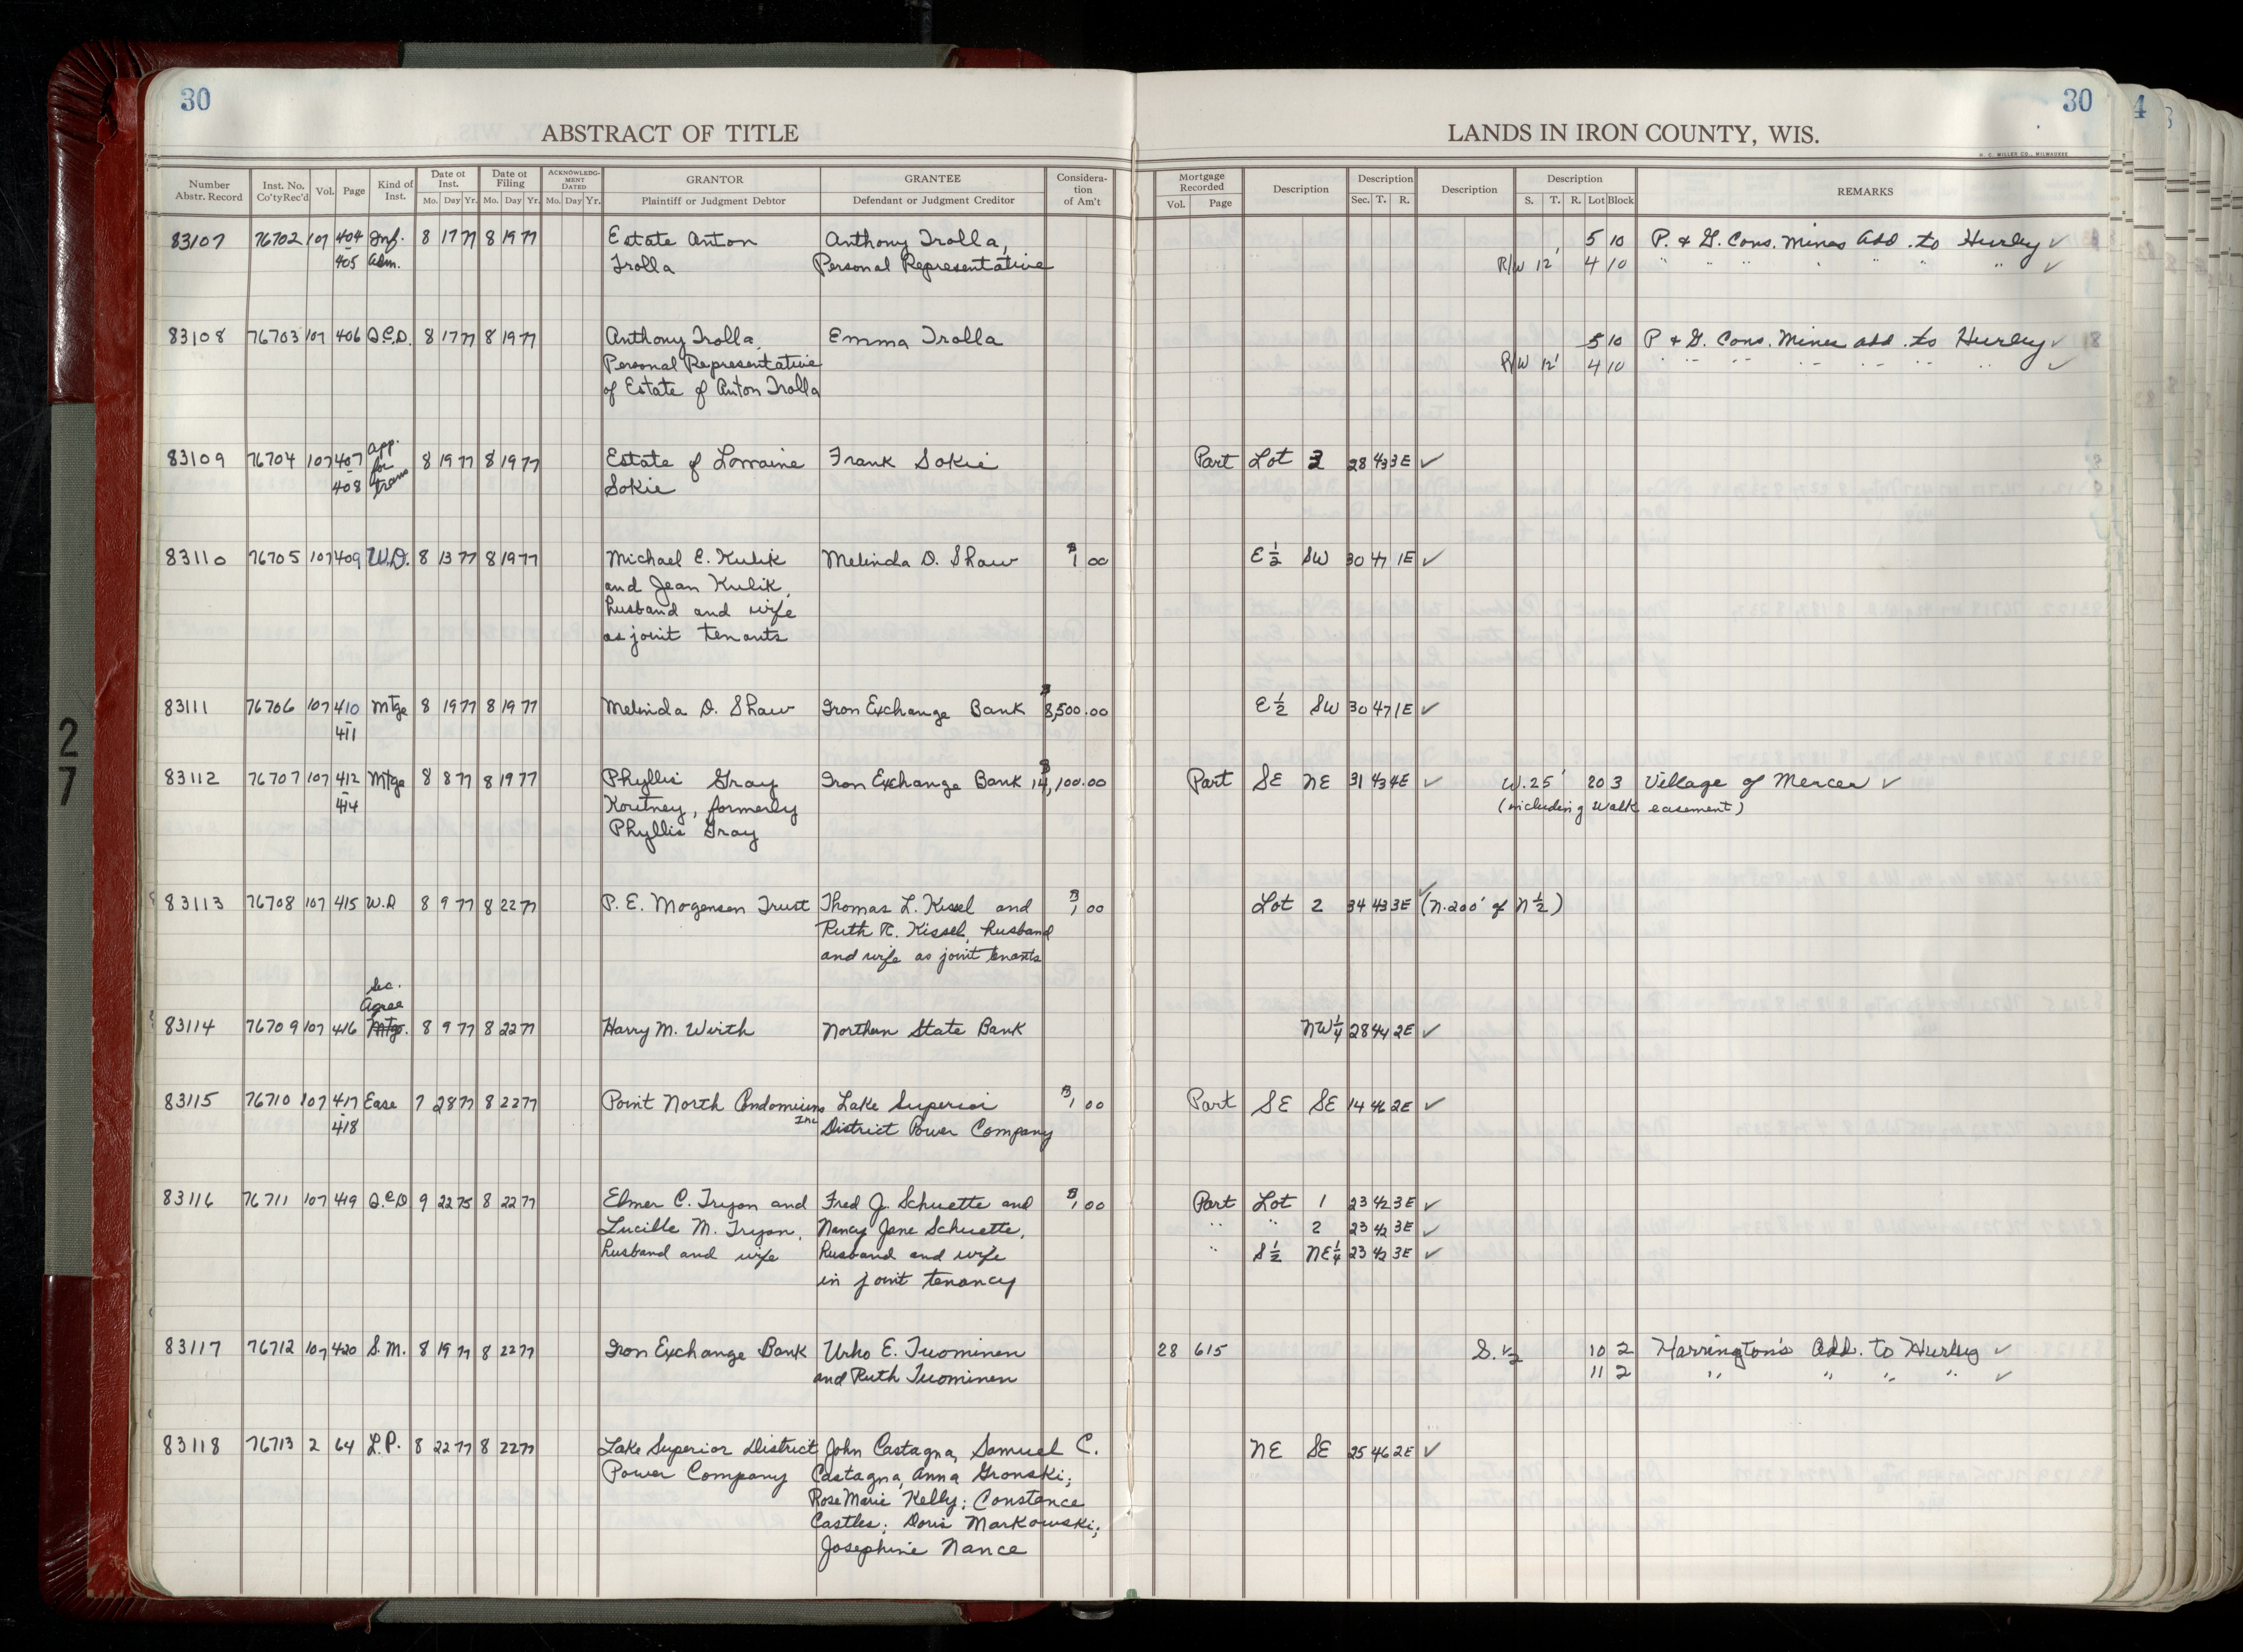 30
30
4
ABSTRACT OF TITLE
LANDS IN IRON COUNTY, WIS.
H. C. MILLER CO., MILWAUKEE
Number Abstr. Record Inst. No. Co'ty Rec'd Vol. Page Kind of Inst. Date of Inst. Mo. Day Yr. Date of Filing Mo. Day Yr. ACKNOWLEDGMENT DATED Mo. Day Yr. GRANTOR Plaintiff or Judgment Debtor GRANTEE Defendant or Judgment Creditor Consideration of Am't Mortgage Recorded Vol. Page Description Description Sec. T. R. Description Description S. T. R. Lot Block REMARKS
83107 76702 107 404 Inf. 8 17 77 8 19 77 Estate Anton Anthony Trolla, 5 10 P. & G. Cons. Mines Add. to Hurley ✓
405 Adm. Trolla Personal Representative R/W 12' 4 10 " " " " " " " ✓
83108 76703 107 406 Q.C.D. 8 17 77 8 19 77 Anthony Trolla, Emma Trolla 5 10 P & G. Cons. Mines Add. to Hurley ✓
Personal Representative R/W 12' 4 10 " " " " " " " ✓
of Estate of Anton Trolla
83109 76704 107 407 - 408 App. for trans 8 19 77 8 19 77 Estate of Lorraine Frank Sokie Part Lot 3 28 43 3E ✓
Sokie
83110 76705 107 409 W.D. 8 13 77 8 19 77 Michael E. Kulik Melinda D. Shaw $1 00 E½ SW 30 47 1E ✓
and Jean Kulik,
husband and wife
as joint tenants
83111 76706 107 410 Mtge 8 19 77 8 19 77 Melinda D. Shaw Iron Exchange Bank $8,500.00 E½ SW 30 47 1E ✓
411
83112 76707 107 412 Mtge 8 8 77 8 19 77 Phyllis Gray Iron Exchange Bank $14,100.00 Part SE NE 31 43 4E ✓ W. 25' 20 3 Village of Mercer ✓
414 Koutney, formerly (including Walk easement)
Phyllis Gray
83113 76708 107 415 W.D 8 9 77 8 22 77 P. E. Mogensen Trust Thomas L. Kissel and $1 00 Lot 2 34 43 3E ✓ (N. 200' of N½)
Ruth R. Kissel, husband
and wife as joint tenants
Sec.
Agree
83114 76709 107 416 Mtge. 8 9 77 8 22 77 Harry M. Wirth Northern State Bank NW¼ 28 44 2E ✓
83115 76710 107 417 Ease 7 28 77 8 22 77 Point North Condomiums Lake Superior $1 00 Part SE SE 14 46 2E ✓
418 Inc District Power Company
83116 76711 107 419 Q.C.D 9 22 75 8 22 77 Elmer C. Tryon and Fred J. Schuette and $1 00 Part Lot 1 23 42 3E ✓
Lucille M. Tryon, Nancy Jane Schuette, " " 2 23 42 3E ✓
husband and wife husband and wife " S½ NE¼ 23 42 3E ✓
in joint tenancy
83117 76712 107 420 S.M. 8 19 77 8 22 77 Iron Exchange Bank Urho E. Tuominen 28 615 S.½ 10 2 Harrington's Add. to Hurley ✓
and Ruth Tuominen 11 2 " " " " ✓
83118 76713 2 64 L.P. 8 22 77 8 22 77 Lake Superior District John Castagna, Samuel C. NE SE 25 46 2E ✓
Power Company Castagna, Anna Gronski;
Rose Marie Kelly; Constance
Castles; Doris Markowski;
Josephine Nance
27